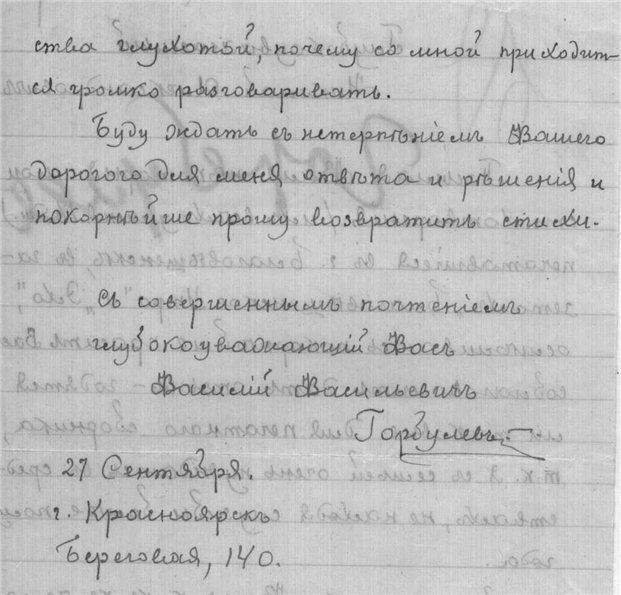 ства глухотой, почему со мной приходит-
ся громко разговаривать.
Буду ждать съ нетерпѣніемъ Вашего
дорогого для меня отвѣта и рѣшенія и
покорнѣйше прошу возвратить стихи.
Съ совершеннымъ почтеніемъ
глубокоуважающій Васъ
Василій Васильевичъ
Горбулевъ.
27 Сентября.
г. Красноярскъ
Береговая, 140.